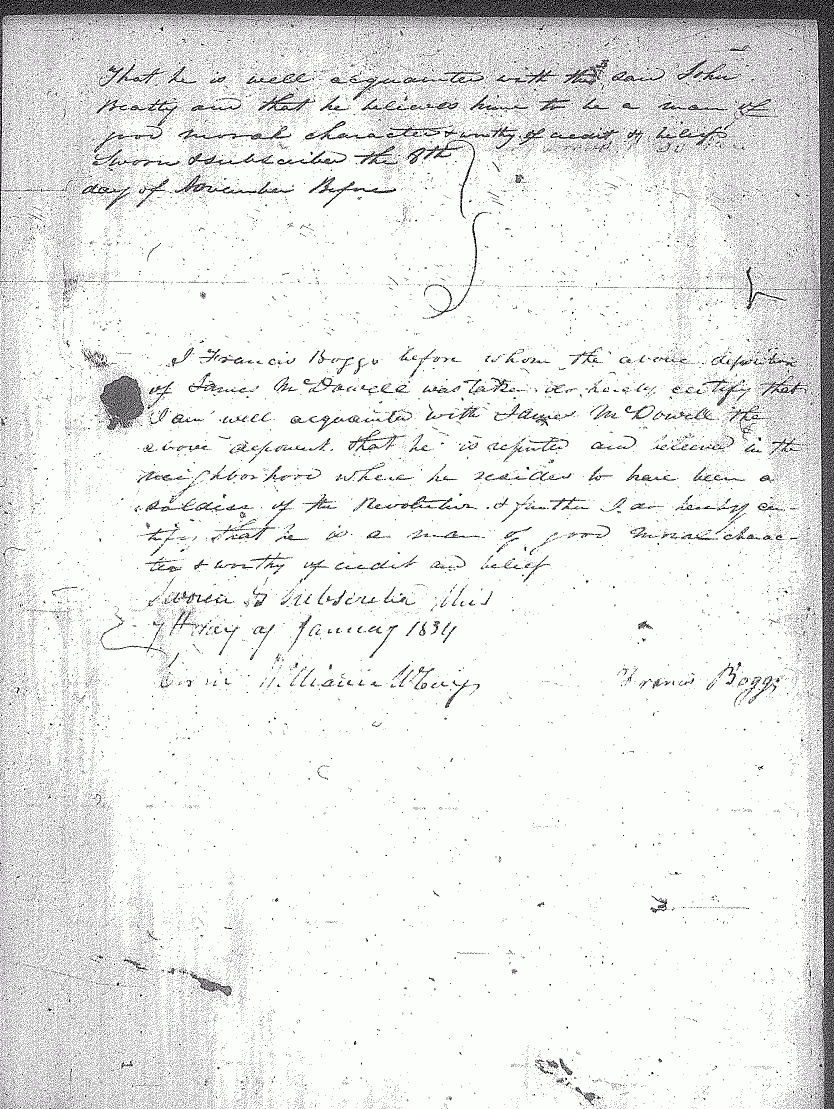 That he is well acquainted with the said John
Beatty and that he believes him to be a man of
good moral character & worthy of credit & belief
Sworn & subscribed the 8th
day of November Before
I Francis Boggs before whom the above deposition
of James McDowell was taken do hereby certify that
I am well acquainted with James McDowell the
above deponent that he is reputed and believed in the
neighborhood where he resides to have been a
soldier of the Revolution & further I do hereby cer-
tify that he is a man of good moral charac-
ter & worthy of credit and belief
Sworn & Subscribed this
7th day of January 1834
William
Francis Boggs